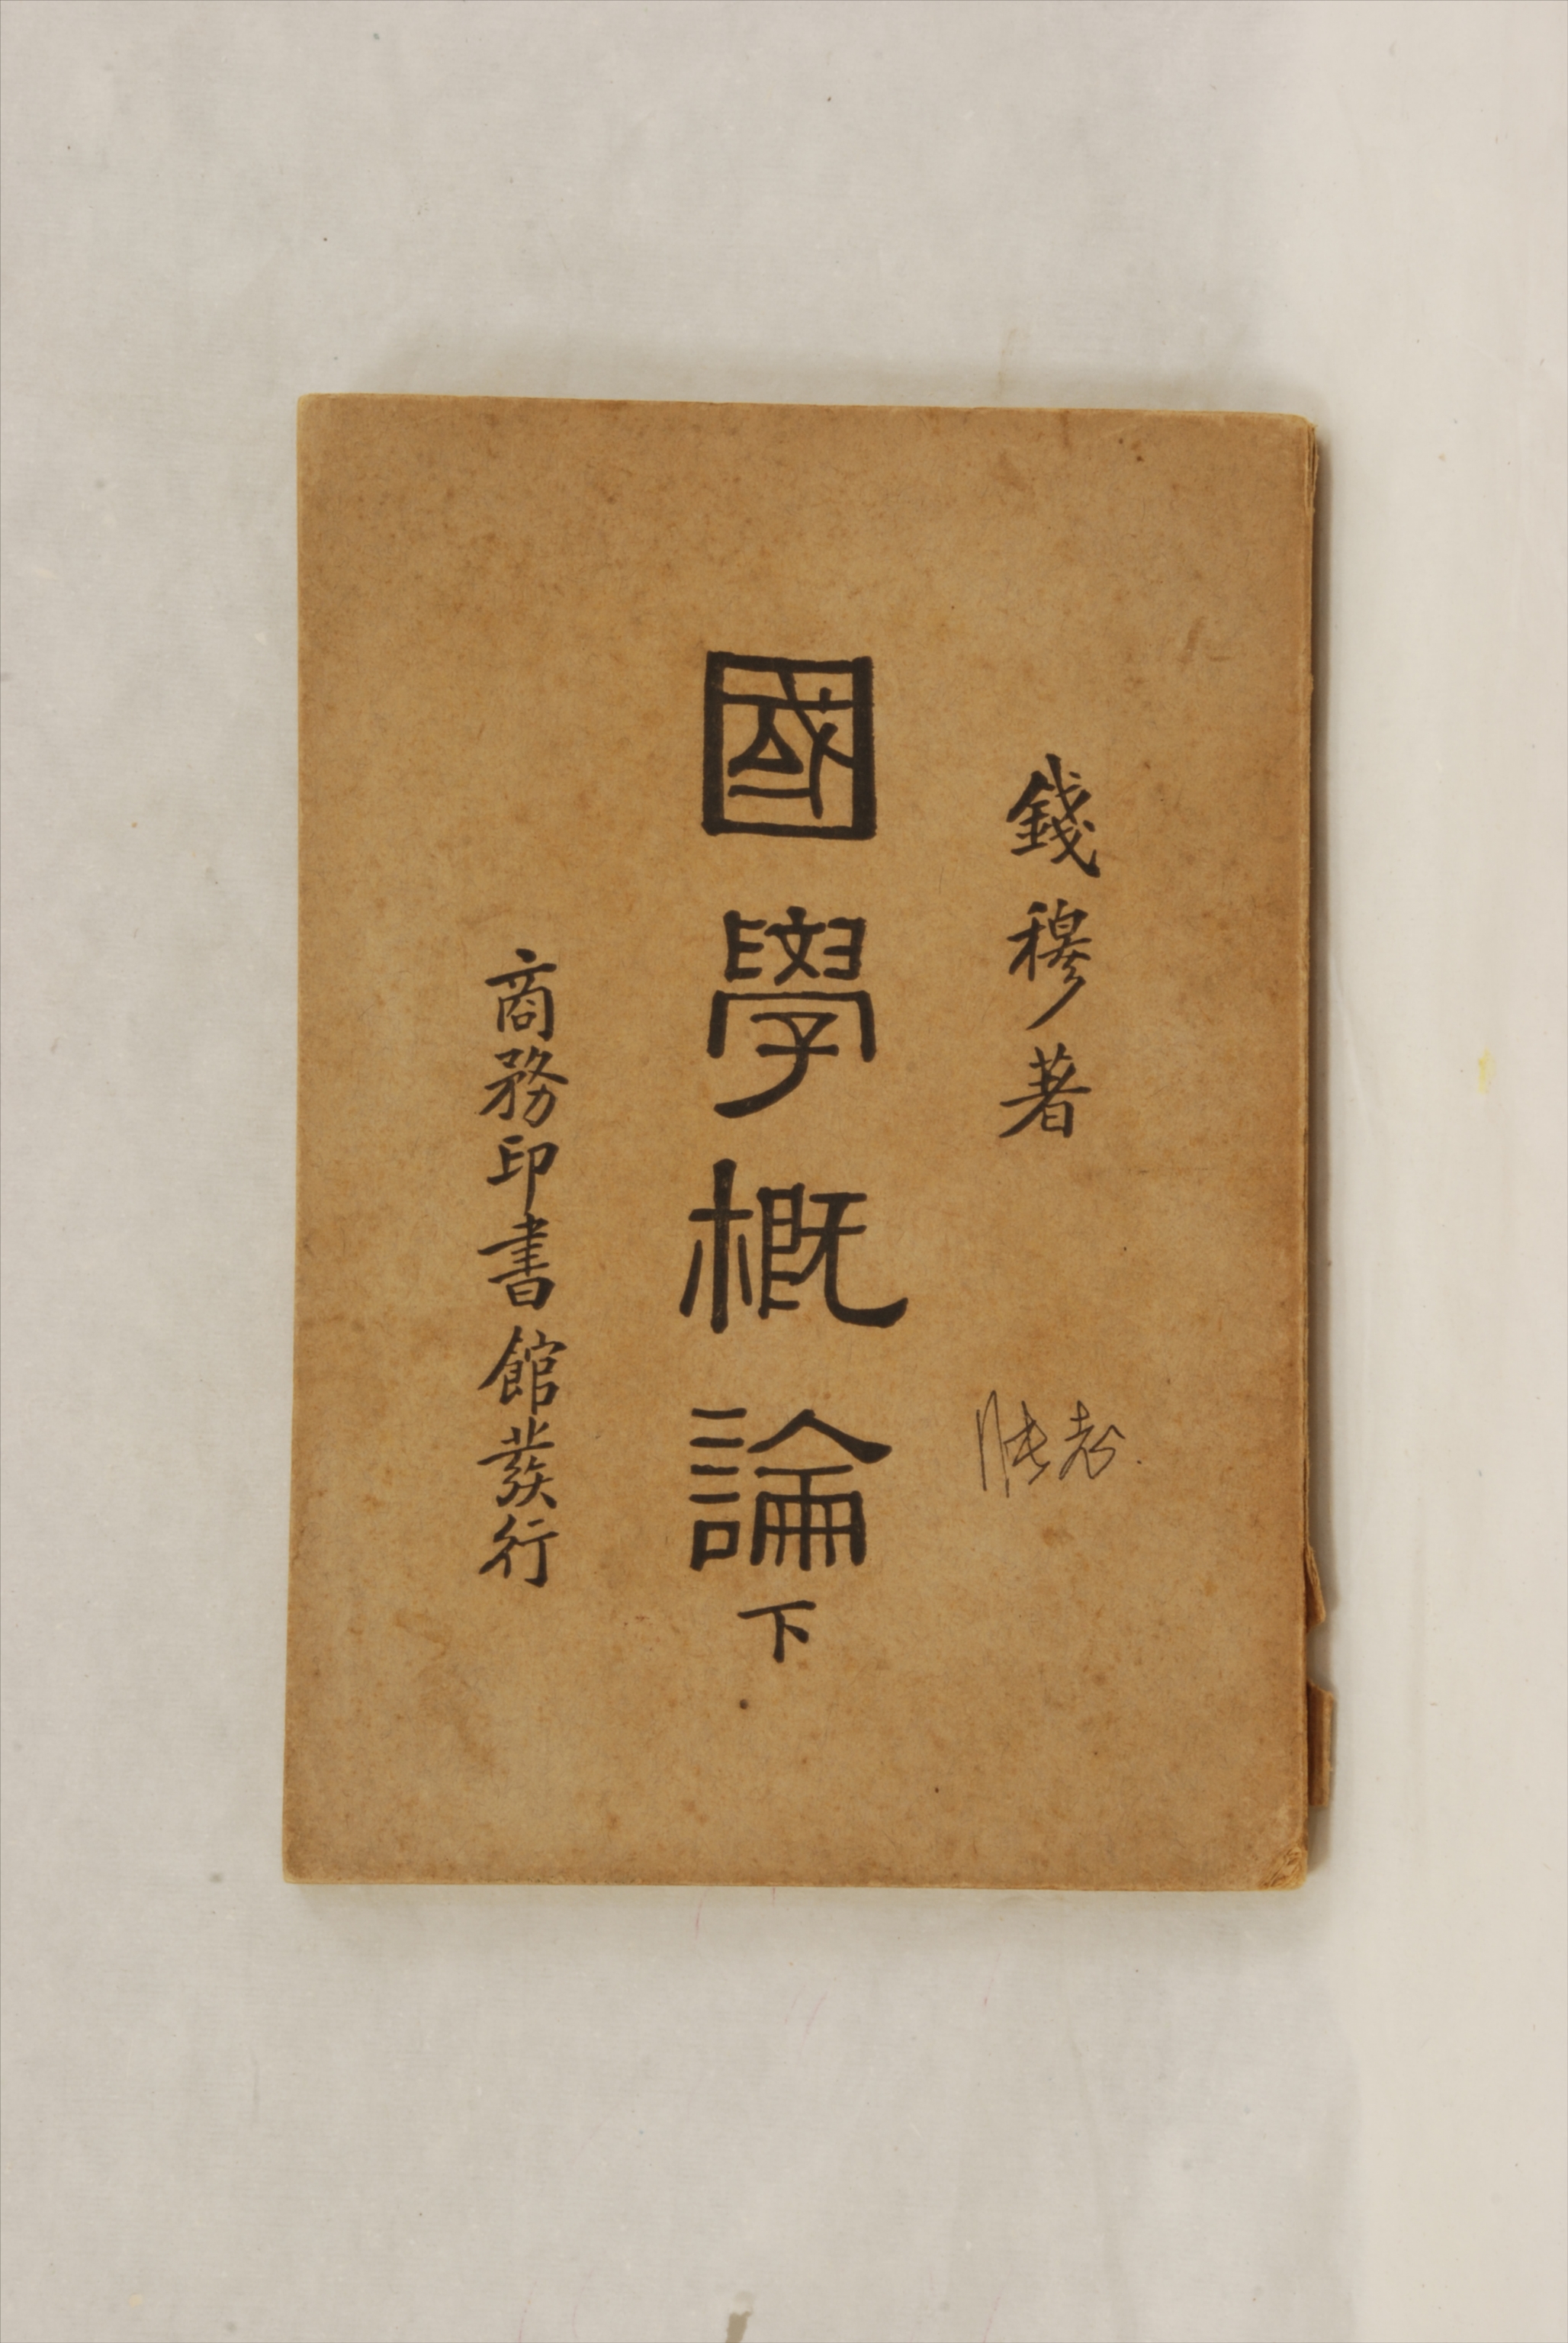 錢穆著
國學概論下
商務印書館發行